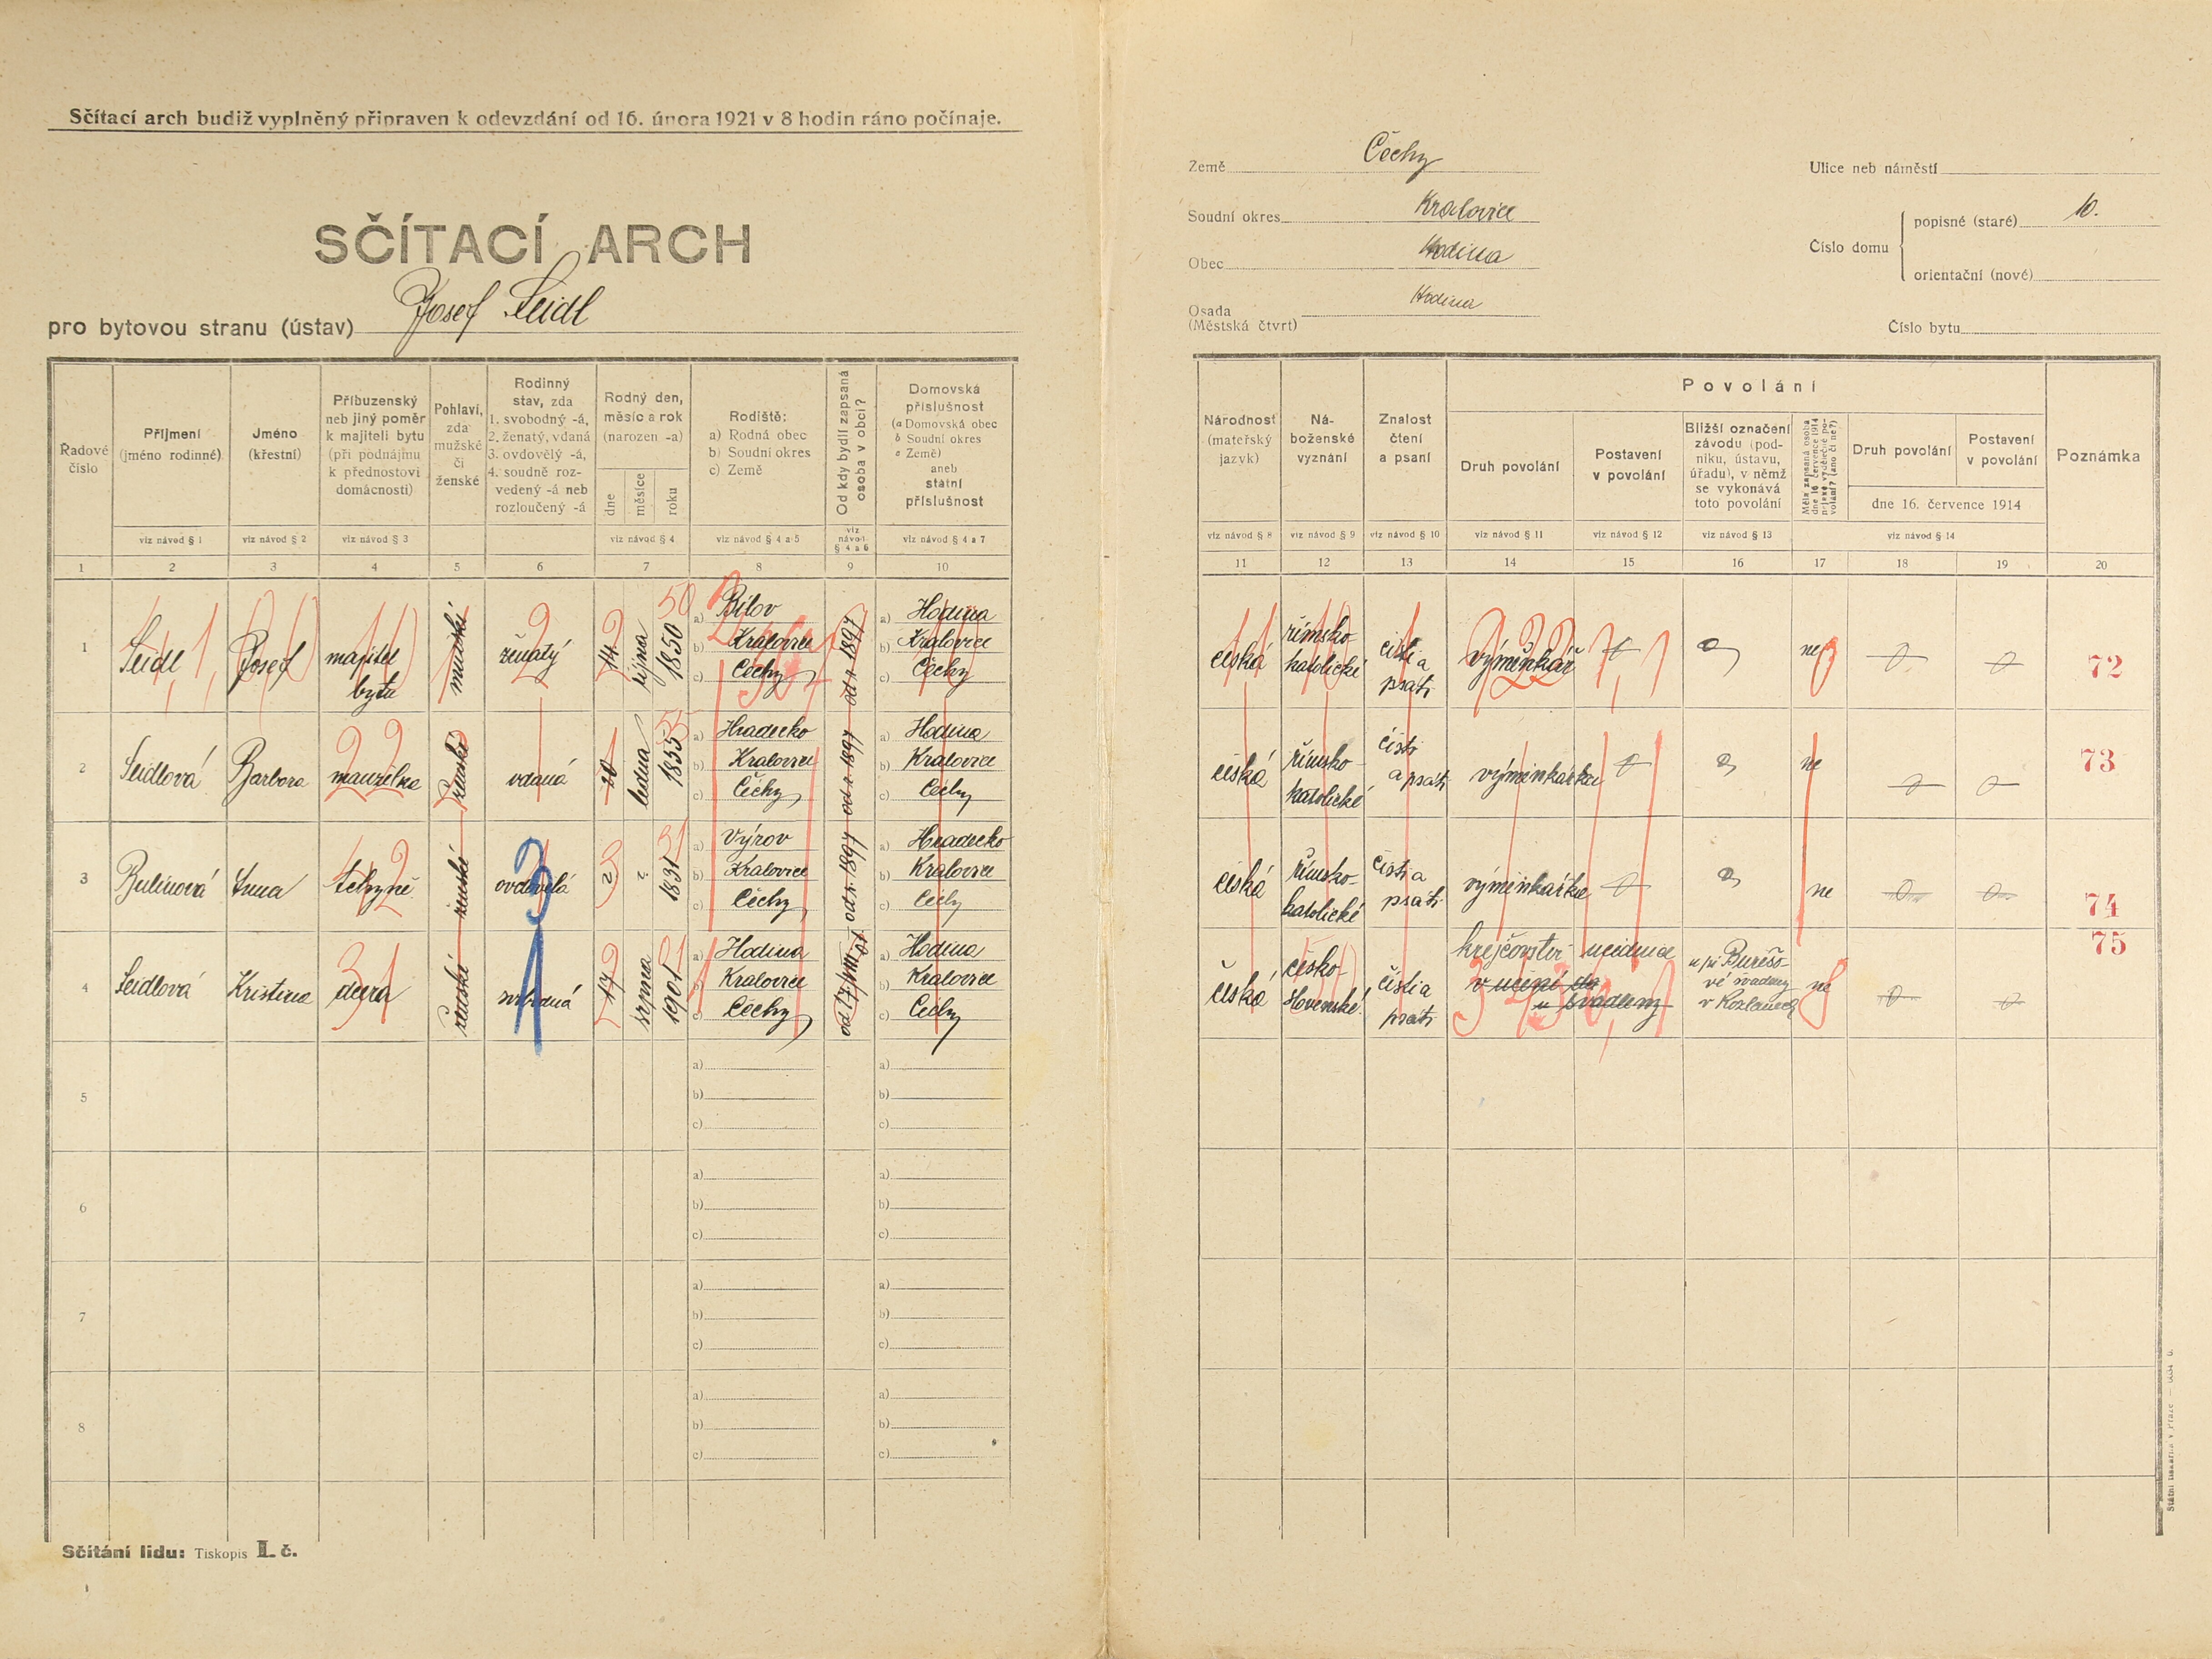 Sčítací arch budiž vyplněný připraven k odevzdání od 16. února 1921 v 8 hodin ráno počínaje.
SČÍTACÍ ARCH
pro bytovou stranu (ústav) Josef Seidl
Země Čechy
Soudní okres Kralovice
Obec Hodina
Osada Hodina
(Městská čtvrt)
Ulice neb náměstí
Číslo domu
popisné (staré) 10.
orientační (nové)
Číslo bytu
Řadové číslo
Příjmení (jméno rodinné)
Jméno (křestní)
Příbuzenský neb jiný poměr k majiteli bytu (při podnájmu k přednostovi domácnosti)
Pohlaví, zda mužské či ženské
Rodinný stav, zda 1. svobodný -á, 2. ženatý, vdaná 3. ovdovělý -á, 4. soudně rozvedený -á neb rozloučený -á
Rodný den, měsíc a rok (narozen -a)
dne měsíce roku
Rodiště: a) Rodná obec b) Soudní okres c) Země
Od kdy bydlí zapsaná osoba v obci?
Domovská příslušnost (a Domovská obec b Soudní okres c Země) aneb státní příslušnost
viz návod § 1 viz návod § 2 viz návod § 3 viz návod § 4 viz návod § 4 a 5 viz návod § 4 a 6 viz návod § 4 a 7
1 2 3 4 5 6 7 8 9 10
Národnost (mateřský jazyk)
Náboženské vyznání
Znalost čtení a psaní
Povolání
Druh povolání
Postavení v povolání
Bližší označení závodu (podniku, ústavu, úřadu), v němž se vykonává toto povolání
Měla zapsaná osoba dne 16. července 1914 nějaké výdělečné povolání? (ano či ne?)
Druh povolání
Postavení v povolání
dne 16. července 1914
Poznámka
viz návod § 8 viz návod § 9 viz návod § 10 viz návod § 11 viz návod § 12 viz návod § 13 viz návod § 14
11 12 13 14 15 16 17 18 19 20
1 Seidl Josef majitel bytu mužské ženatý 14 října 1850 50
a) Bílov b) Kralovice c) Čechy
od r. 1897
a) Hodina b) Kralovice c) Čechy
česká římsko-katolické čísti a psáti výminkář ne 72
2 Seidlová Barbora manželka ženské vdaná ledna 1855 55
a) Hradecko b) Kralovice c) Čechy
od r. 1897
a) Hodina b) Kralovice c) Čechy
česká římsko-katolické čísti a psáti výminkářka ne 73
3 Anna tchyně ženské ovdovělá ? ? 1831 31
a) Výrov b) Kralovice c) Čechy
od r. 1897
a) Hradecko b) Kralovice c) Čechy
česká římsko-katolické čísti a psáti výminkářka ne 74
4 Seidlová Kristina dcera ženské svobodná 17 srpna 1901 01
a) Hodina b) Kralovice c) Čechy
od 17/VIII 01
a) Hodina b) Kralovice c) Čechy
česká česko-slovenské čísti a psáti krejčovství učednice
v učení u švadleny
u pí Burešové švadleny v Kozlanech
ne 75
5
a) b) c)
a) b) c)
6
a) b) c)
a) b) c)
7
a) b) c)
a) b) c)
8
a) b) c)
a) b) c)
Sčítání lidu: Tiskopis I. č.